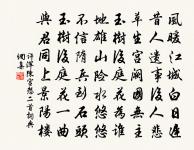 風暖江城白日遲
昔人遺事後人悲
草生宮闕國無主
玉樹後庭花為誰
地雄山險水悠悠
不信隋兵到石頭
玉樹後庭花一曲
與君同上景陽樓
許渾陳宮怨二首詞典
網集